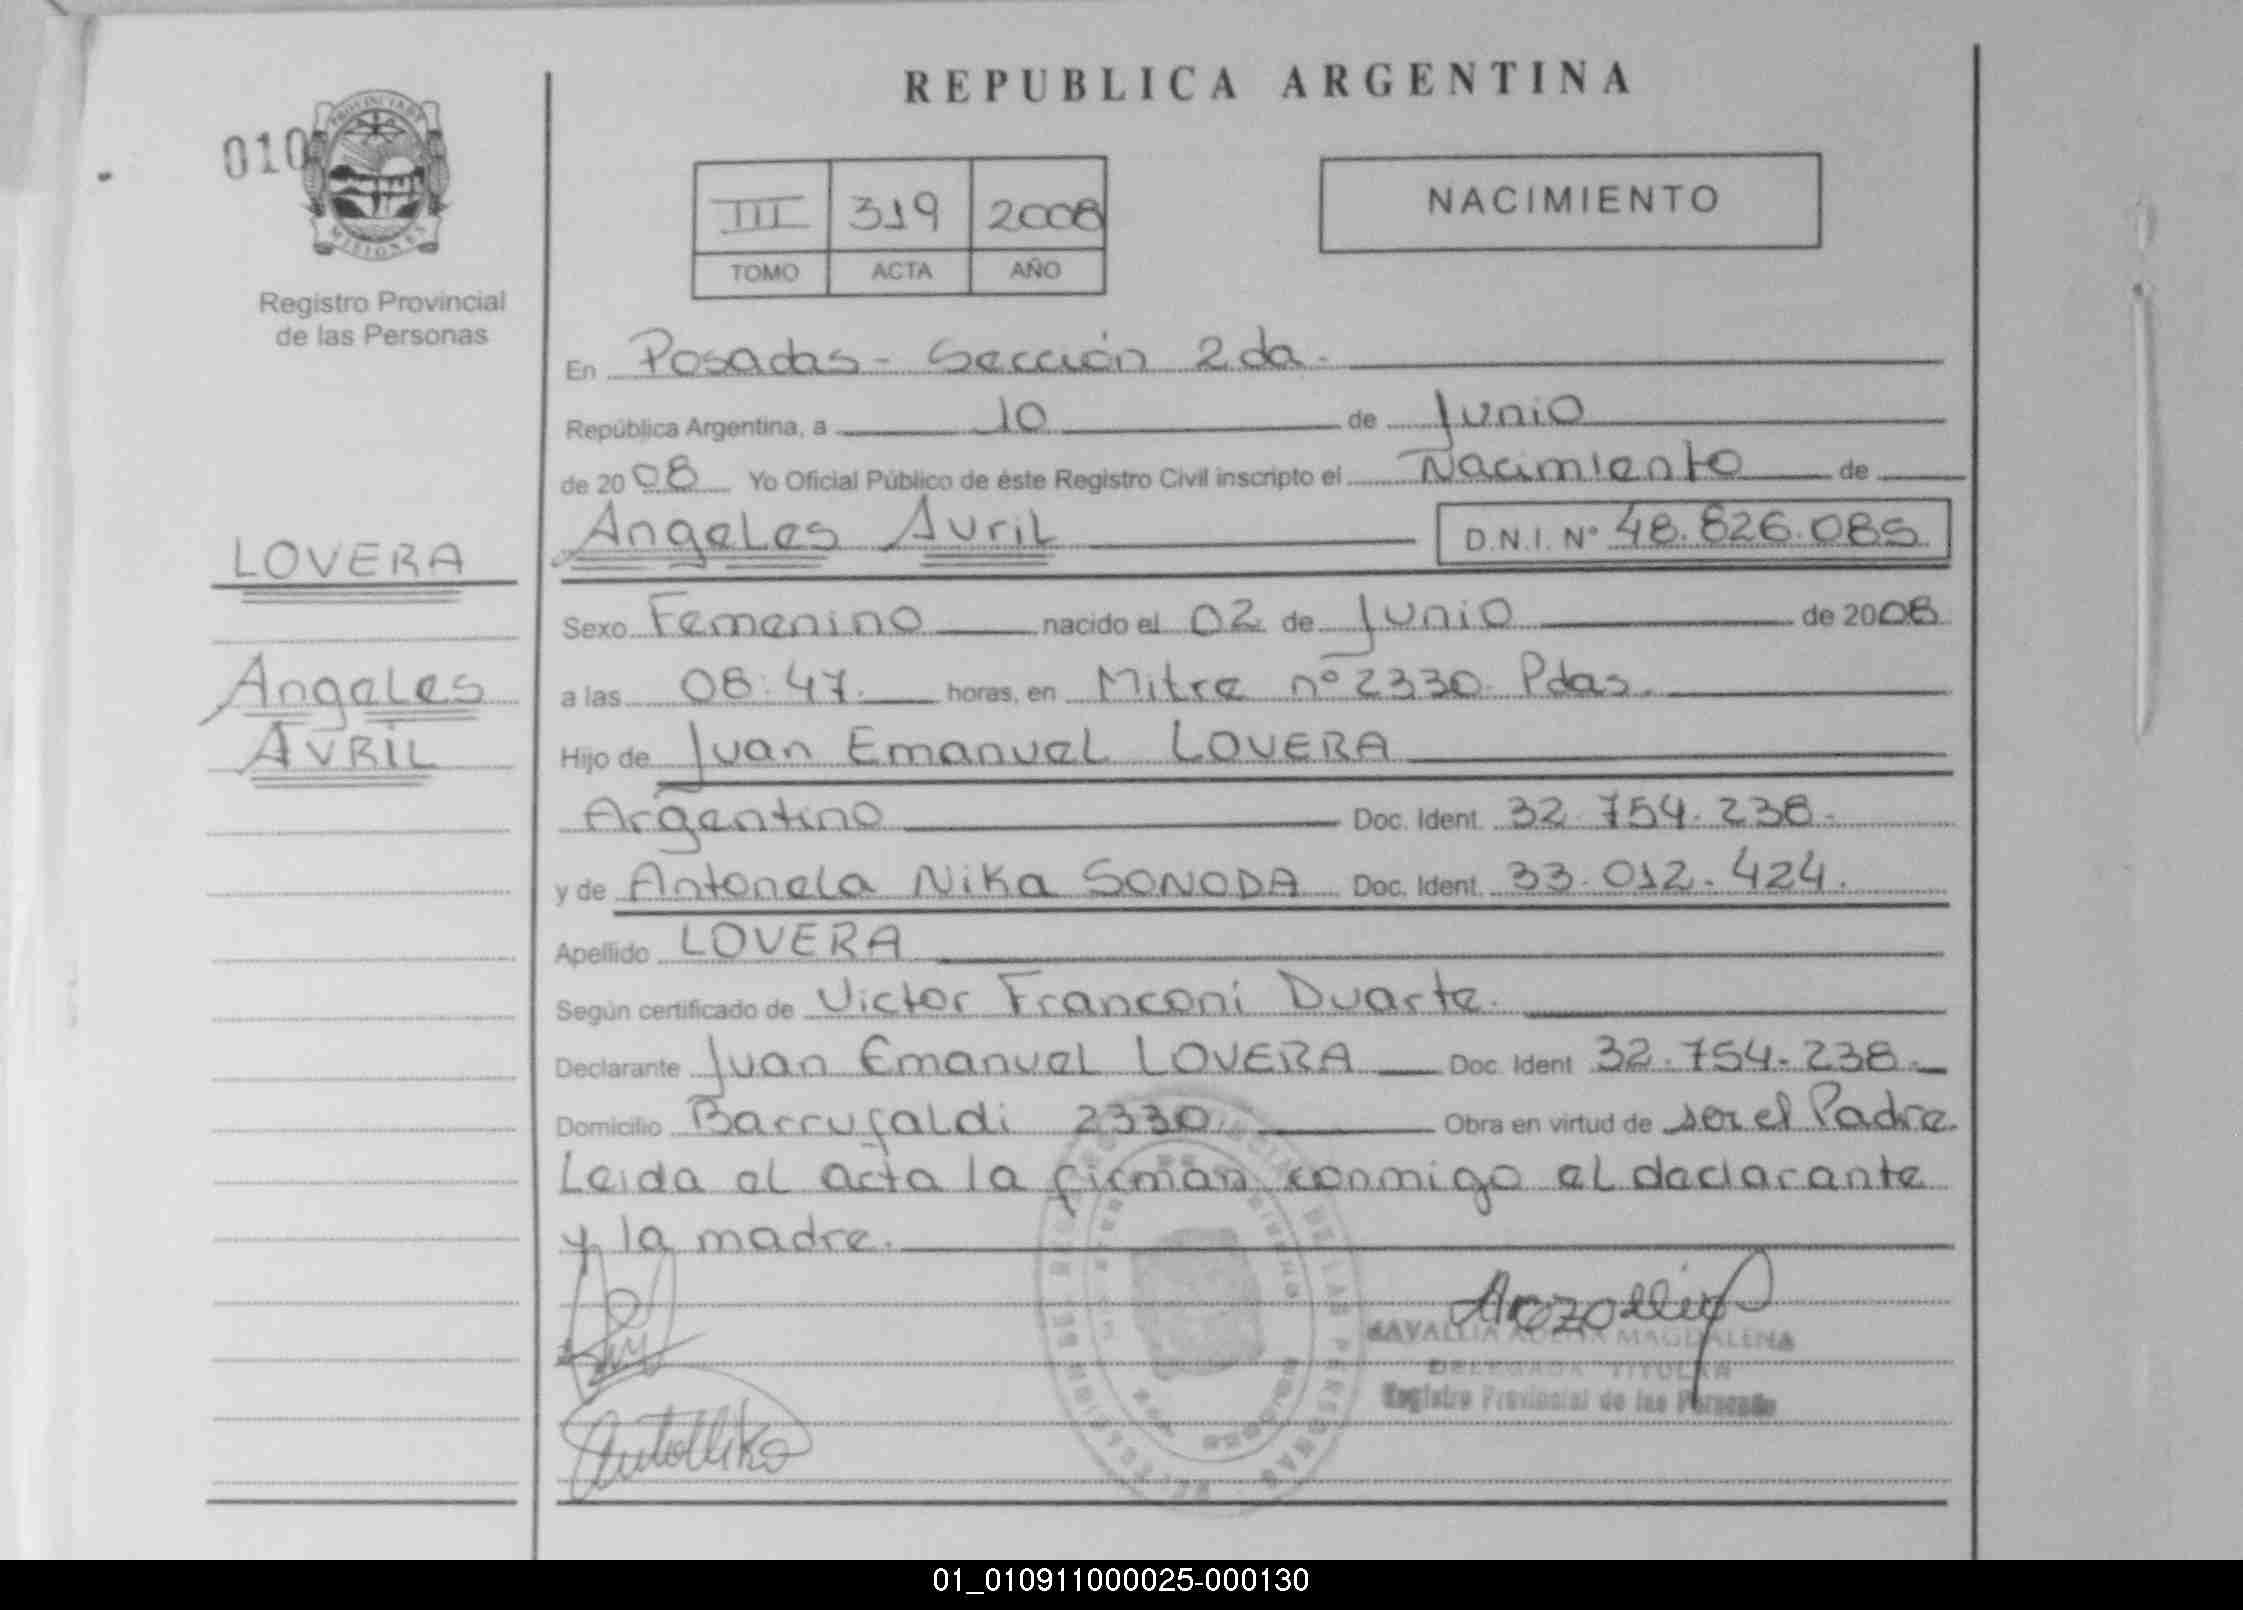 REPUBLICA ARGENTINA
010
PROVINCIA DE
MISIONES
Registro Provincial
de las Personas
III 319 2008
TOMO ACTA AÑO
NACIMIENTO
En Posadas - Sección 2da.
República Argentina, a 10 de Junio
de 2008 Yo Oficial Público de éste Registro Civil inscripto el Nacimiento de
Angeles Avril D.N.I. Nº 48.826.085
LOVERA
Angeles
AVRIL
Sexo Femenino nacido el 02 de Junio de 2008
a las 08:47. horas, en Mitre nº 2330. Pdas.
Hijo de Juan Emanuel LOVERA
Argentino Doc. Ident. 32.754.238.
y de Antonela Nika SONODA Doc. Ident. 33.012.424.
Apellido LOVERA
Según certificado de Victor Franconi Duarte.
Declarante Juan Emanuel LOVERA Doc. Ident 32.754.238.
Domicilio Barrufaldi 2330. Obra en virtud de ser el Padre.
Leida el acta la firman conmigo el declarante
y la madre.
MAGDALENA
DELEGADA TITULAR
Registro Provincial de las Personas
01_010911000025-000130